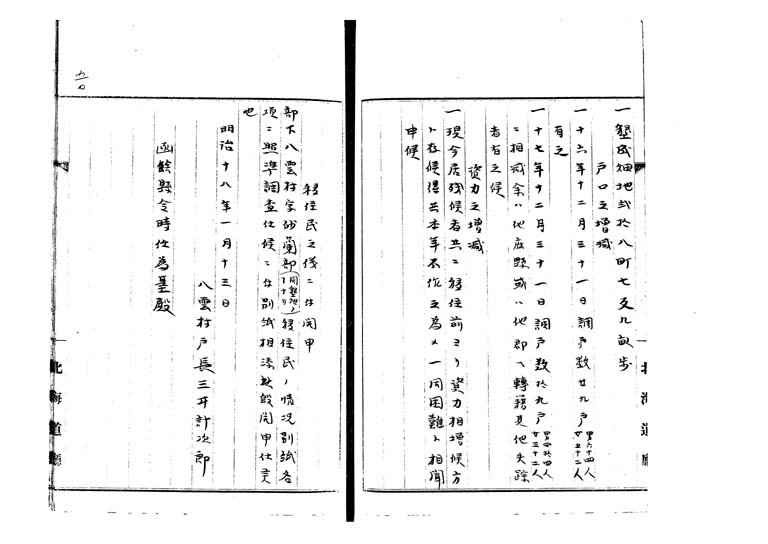 一墾成畑地弐拾八町七反九畝歩
戸口之増減
一十六年十二月三十一日調戸数廿九戸男六十四人女五十二人
有之
一十七年十二月三十一日調戸数拾九戸男四拾四人女三十二人
ニ相減余ハ他府県或ハ他郡ヘ轉籍其他失踪
者有之候
資力之増減
一現今居残候者共ニ移住前ヨリ資力相増候方
ト存候得共本年不作之為メ一同困難ト相聞
申候
北海道廳
移住民之儀ニ付開申
部下八雲村字砂蘭部移住民ノ情况別紙各
項ニ照準調査仕候ニ付別紙相添此段開申仕候
也
明治十八年一月十三日
八雲村戸長三井計次郎
函館縣令時任為基殿
北海道廳